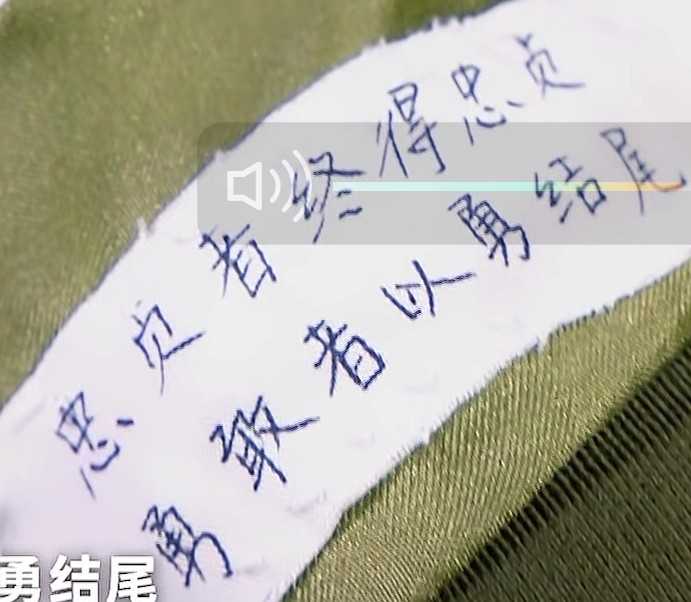 忠贞者终得忠贞
勇敢者以勇结尾
勇结尾